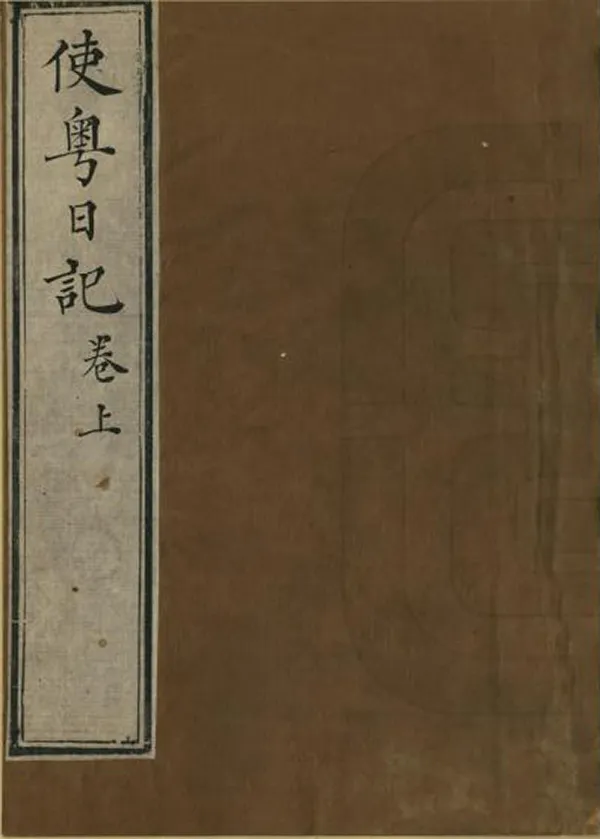 使粵日記
卷上